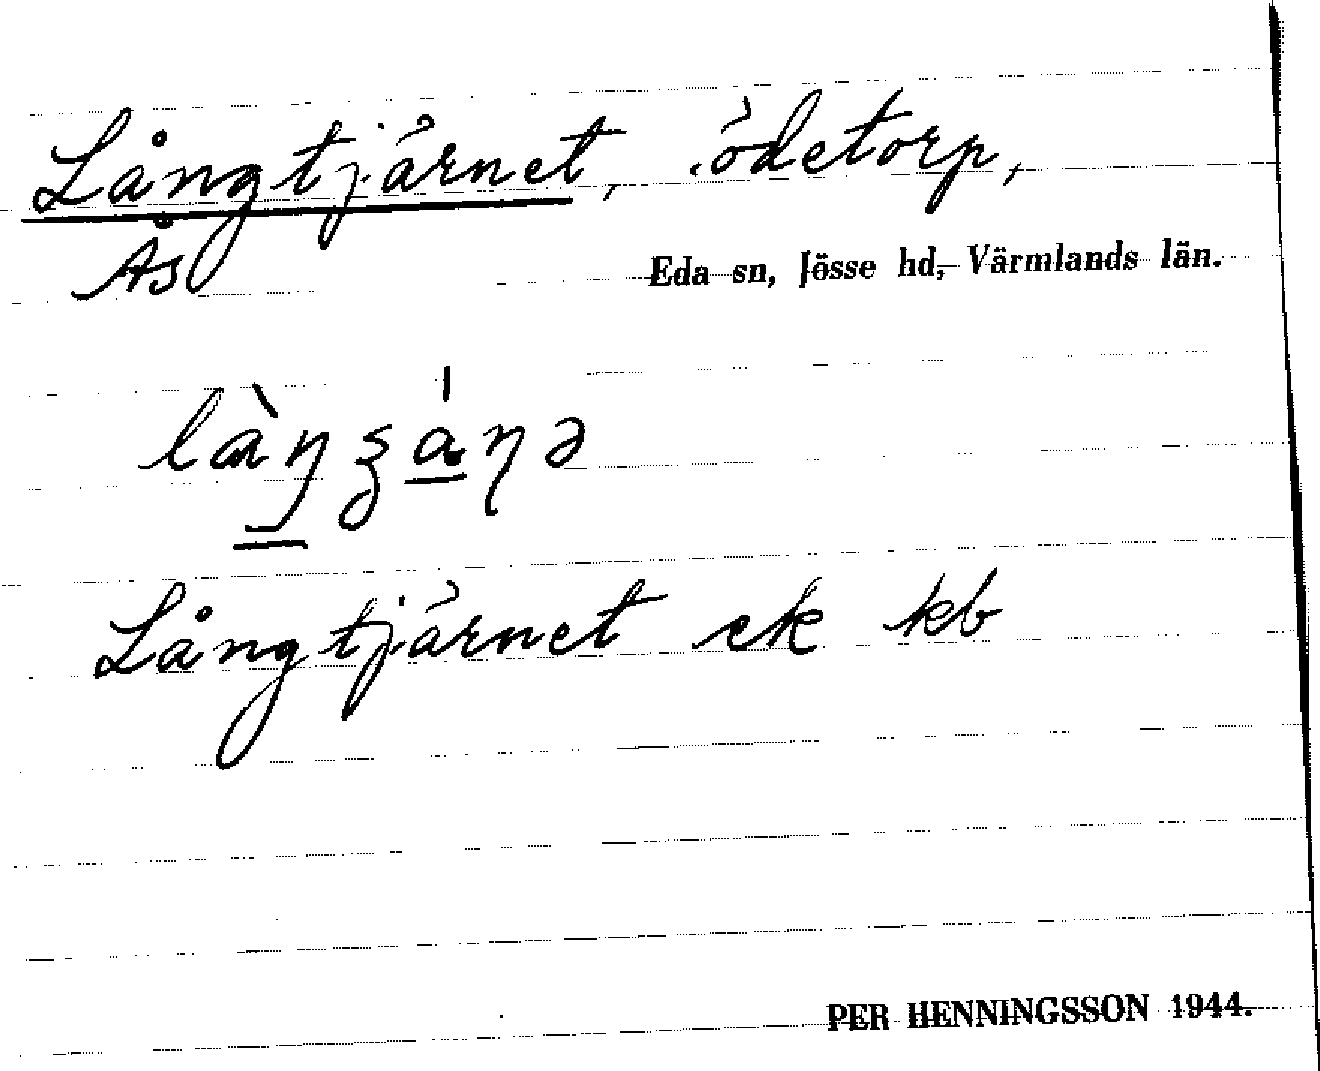 Långtjärnet, ödetorp,
Ås
Eda sn, Jösse hd, Värmlands län.
Långtjärnet ek kb
PER HENNINGSSON 1944.